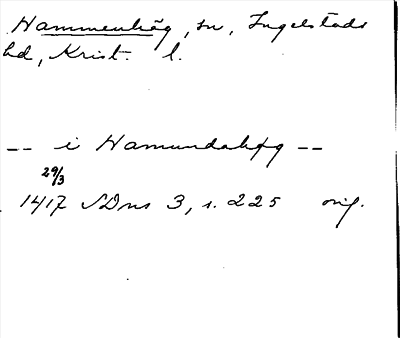 Hammenhög, sn, Ingelstads
hd, Krist. l.
-- i Hamundahøg --
29/3
1417 SDns 3, s. 225 orig.